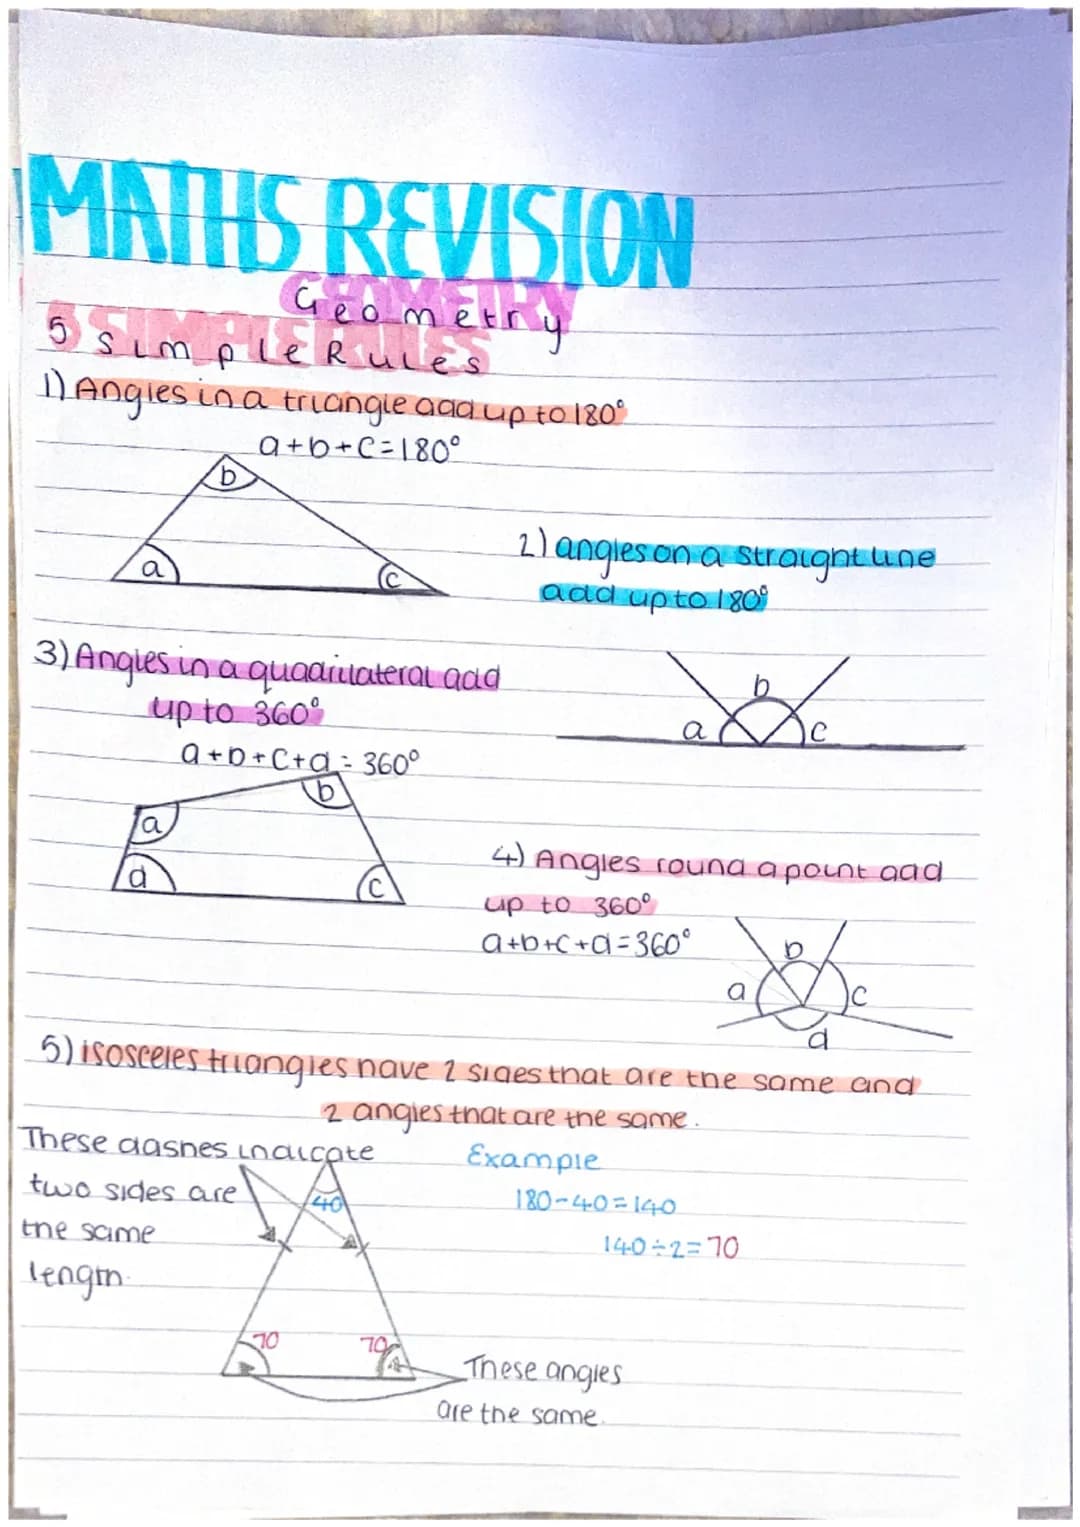 MATHS REVISION
GEOMETRY
Geometry
5 SIMPLE RULES
5 simple Rules
1) Angles in a triangle add up to 180°
a+b+c=180°
b
a
c
2) angles on a straight line
add up to 180°
b
a
c
3) Angles in a quadrilateral add
up to 360°
a+b+c+d = 360°
b
a
d
c
4) Angles round a point add
up to 360°
a+b+c+d=360°
b
a
c
d
5) isosceles triangles have 2 sides that are the same and
2 angles that are the same.
These dashes indicate
two sides are
the same
length.
40
70
70
Example
180-40=140
140÷2=70
These angles
are the same.